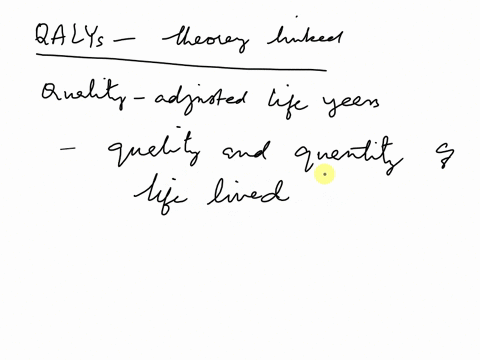 QALYs - theory linked
Quality-adjusted life years
- quality and quantity of
life lived